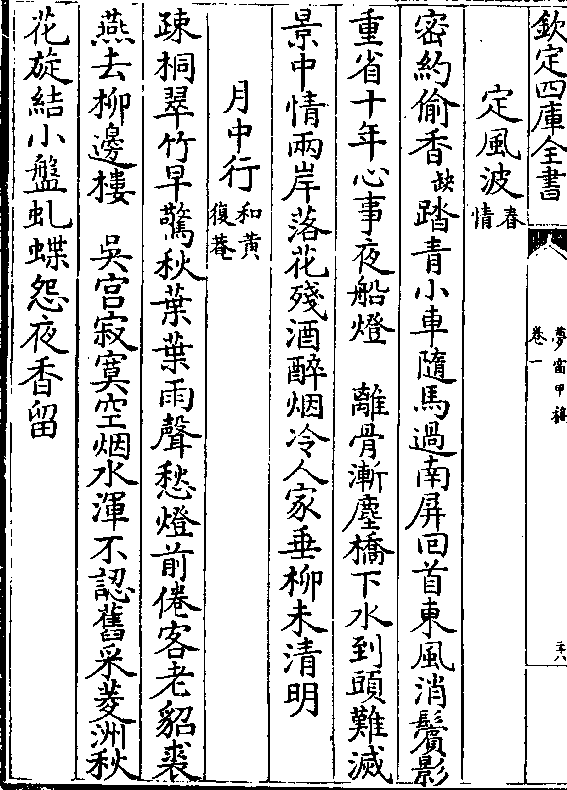 欽定四庫全書
夢窗甲稿
卷一
六
定風波春情
密約偷香缺踏青小車隨馬過南屏回首東風消鬢影
重省十年心事夜船燈　離骨漸塵橋下水到頭難滅
景中情兩岸落花殘酒醉烟冷人家垂柳未清明
月中行和黄復菴
疎桐翠竹早驚秋葉葉雨聲愁燈前倦客老貂裘
燕去柳邊樓　吳宫寂寞空烟水渾不認舊采菱洲秋
花旋結小盤虬蝶怨夜香留